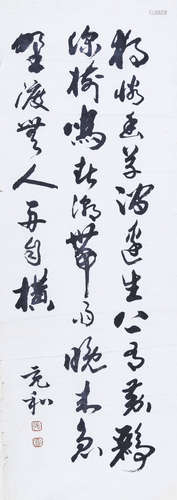 獨憐幽草澗邊生上有黃鸝
深樹鳴春潮帶雨晚來急
野渡無人舟自橫
充和